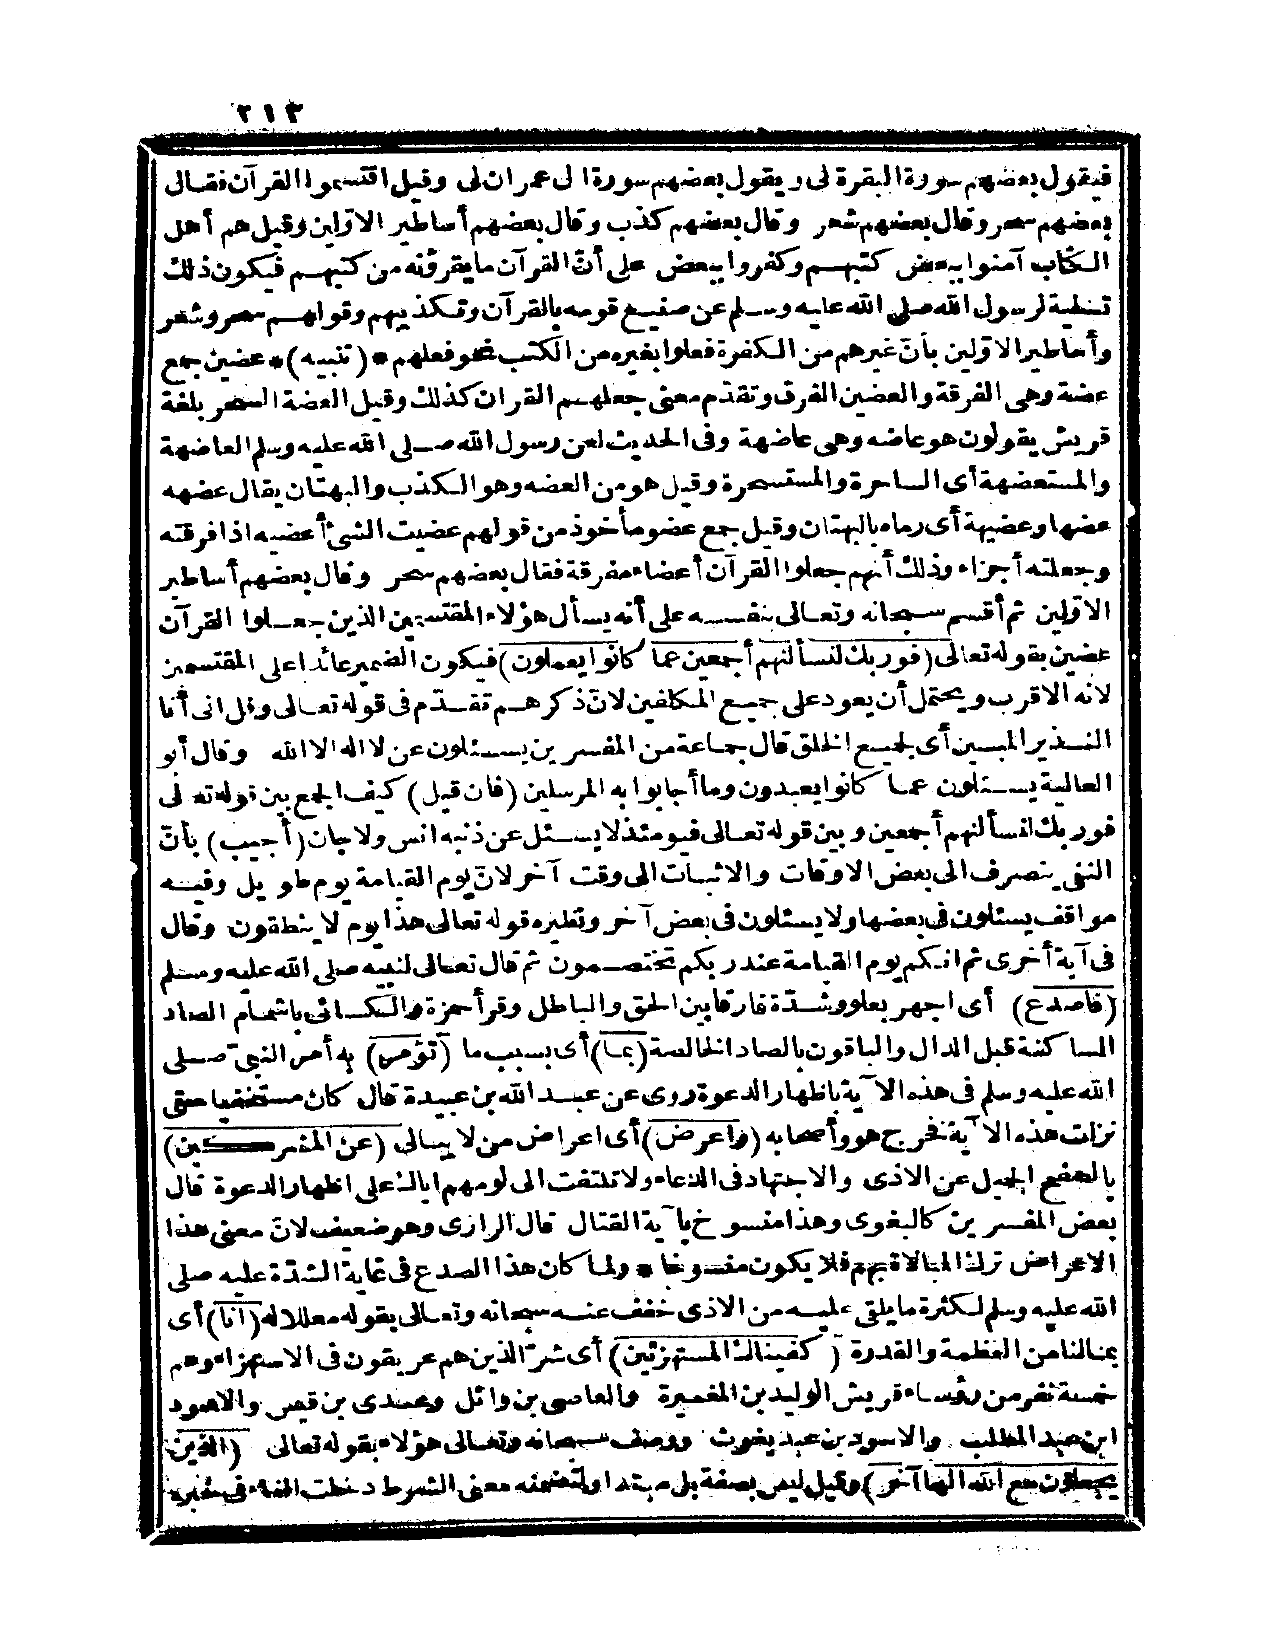 ٢١٣
فيقول بعضهم سورة البقرة لى ويقول بعضهم سورة ال عمران لى وقيل اقتسموا القرآن فقال
بعضهم سحر وقال بعضهم شعر وقال بعضهم كذب وقال بعضهم أساطير الاوّلين وقيل هم أهل
الكتاب آمنوا ببعض كتبهم وكفروا ببعض على أنّ القرآن ما يقرؤنه من كتبهم فيكون ذلك
تسلية لرسول الله صلى الله عليه وسلم عن صنيع قومه بالقرآن وتكذيبهم وقولهم سحر وشعر
وأساطير الاوّلين بأنّ غيرهم من الكفرة فعلوا بغيره من الكتب نحو فعلهم * (تنبيه) * عضين جمع
عضة وهى الفرقة والعضين الفرق وتقدّم معنى جعلهم القران كذلك وقيل العضة السحر بلغة
قريش يقولون هو عاضه وهى عاضهة وفى الحديث لعن رسول الله صلى الله عليه وسلم العاضهة
والمستعضهة أى الساحرة والمستسحرة وقيل هو من العضه وهو الكذب والبهتان يقال عضهه
عضها وعضيهة أى رماه بالبهتان وقيل جمع عضو مأخوذ من قولهم عضيت الشئ أعضيه اذا فرقته
وجعلته أجزاء وذلك أنهم جعلوا القرآن أعضاء مفرقة فقال بعضهم سحر وقال بعضهم أساطير
الاوّلين ثم أقسم سبحانه وتعالى بنفسه على أنه يسأل هؤلاء المقتسمين الذين جعلوا القرآن
عضين بقوله تعالى (فوربك لنسألنهم أجمعين عما كانوا يعملون) فيكون الضمير عائدا على المقتسمين
لانه الاقرب ويحتمل أن يعود على جميع المكلفين لانّ ذكرهم تقدّم فى قوله تعالى وقل انى أنا
النذير المبين أى لجميع الخلق قال جماعة من المفسرين يسئلون عن لا اله الا الله وقال أبو
العالية يسئلون عما كانوا يعبدون وما أجابوا به المرسلين (فان قيل) كيف الجمع بين قوله تعالى
فوربك لنسألنهم أجمعين وبين قوله تعالى فيومئذ لا يسئل عن ذنبه انس ولا جان (أجيب) بأنّ
النفى ينصرف الى بعض الاوقات والاثبات الى وقت آخر لانّ يوم القيامة يوم طويل وفيه
مواقف يسئلون فى بعضها ولا يسئلون فى بعض آخر ونظيره قوله تعالى هذا يوم لا ينطقون وقال
فى آية أخرى ثم انكم يوم القيامة عند ربكم تختصمون ثم قال تعالى لنبيه صلى الله عليه وسلم
(فاصدع) أى اجهر بعلو وشدّة فارقا بين الحق والباطل وقرأ حمزة والكسائى باشمام الصاد
الساكنة قبل الدال والباقون بالصاد الخالصة (بما) أى بسبب ما (تؤمر) به أمر النبىّ صلى
الله عليه وسلم فى هذه الآية باظهار الدعوة روى عن عبد الله بن عبيدة قال كان مستخفيا حتى
نزلت هذه الآية فخرج هو وأصحابه (وأعرض) أى اعراض من لا يبالى (عن المشركين)
بالصفح الجميل عن الاذى والاجتهاد فى الدعاء ولا تلتفت الى لومهم اياك على اظهار الدعوة قال
بعض المفسرين كالبغوى وهذا منسوخ بآية القتال قال الرازى وهو ضعيف لانّ معنى هذا
الاعراض ترك المبالاة بهم فلا يكون منسوخا * ولما كان هذا الصدع فى غاية الشدّة عليه صلى
الله عليه وسلم لكثرة ما يلقى عليه من الاذى خفف عنه سبحانه وتعالى بقوله معللا له (انا) أى
بمالنا من العظمة والقدرة (كفيناك المستهزئين) أى شرّ الذين هم عريقون فى الاستهزاء وهم
خمسة نفر من رؤساء قريش الوليد بن المغيرة والعاصى بن وائل وعدى بن قيس والاسود
ابن عبد المطلب والاسود بن عبد يغوث ووصف سبحانه وتعالى هؤلاء بقوله تعالى (الذين
يجعلون مع الله الها آخر) وقيل ليس بصفة بل مبتدا ولتضمنه معنى الشرط دخلت الفاء فى خبره